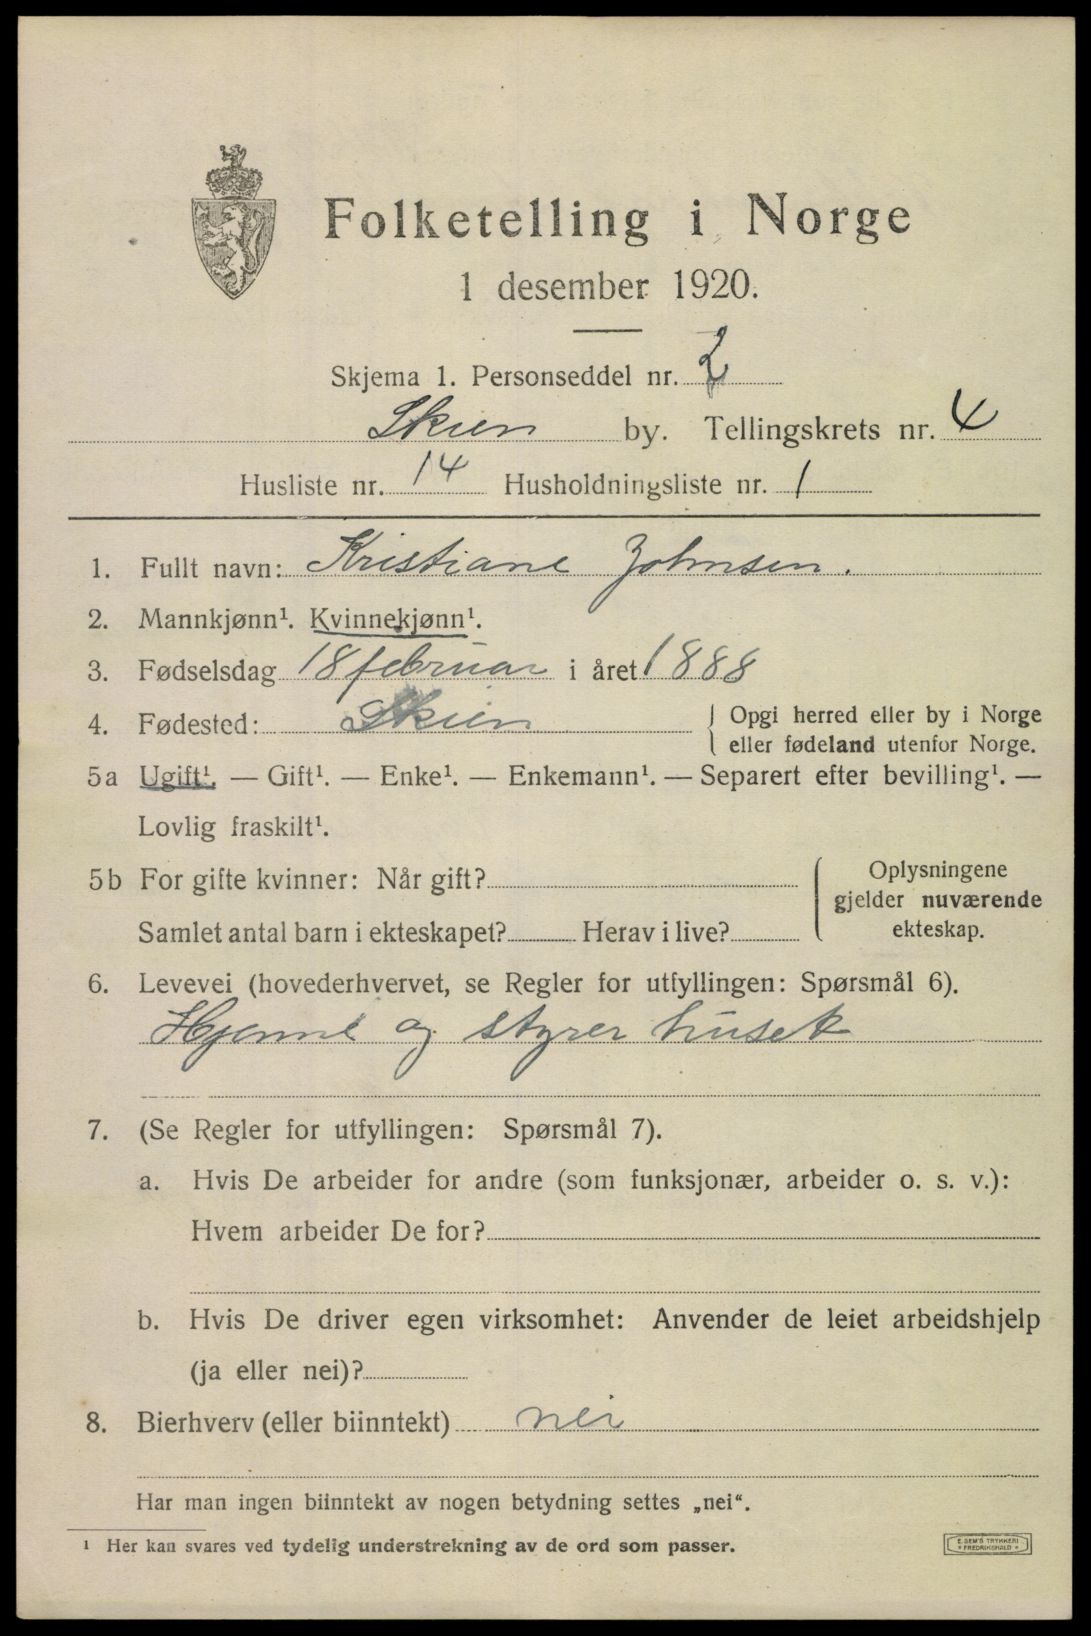 Folketelling i Norge
1 desember 1920.
Skjema 1. Personseddel nr. 2
Skien by. Tellingskrets nr. 4
Husliste nr. 14 Husholdningsliste nr. 1
1. Fullt navn: Kristiane Johnsen.
2. Mannkjønn¹. Kvinnekjønn¹.
3. Fødselsdag 18 februar i året 1888
4. Fødested: Skien { Opgi herred eller by i Norge
eller fødeland utenfor Norge.
5a Ugift¹. — Gift¹. — Enke¹. — Enkemann¹. — Separert efter bevilling¹. —
Lovlig fraskilt¹.
5b For gifte kvinner: Når gift? { Oplysningene
gjelder nuværende
Samlet antal barn i ekteskapet? Herav i live? ekteskap.
6. Levevei (hovederhvervet, se Regler for utfyllingen: Spørsmål 6).
Hjeme og styrer huset
7. (Se Regler for utfyllingen: Spørsmål 7).
a. Hvis De arbeider for andre (som funksjonær, arbeider o. s. v.):
Hvem arbeider De for?
b. Hvis De driver egen virksomhet: Anvender de leiet arbeidshjelp
(ja eller nei)?
8. Bierhverv (eller biinntekt) nei
Har man ingen biinntekt av nogen betydning settes „nei“.
¹ Her kan svares ved tydelig understrekning av de ord som passer.
E. SEM'S TRYKKERI
FREDRIKSHALD